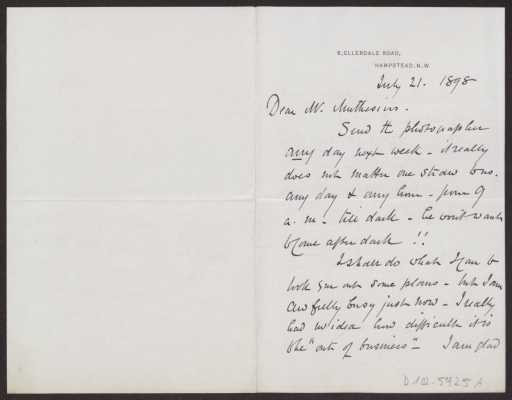 6, ELLERDALE ROAD,
HAMPSTEAD, N.W.
July 21. 1898
Dear Mr. Muthesius.
Send the photographer
any day next week - it really
does not matter one straw to us.
any day & any hour - from 9
a.m - till dark - he won't want
to come after dark !!
I shall do what I can to
look you out some plans - but I am
awfully busy just now - I really
had no idea how difficult it is
the "out of business" - I am glad
D 102-5925 A